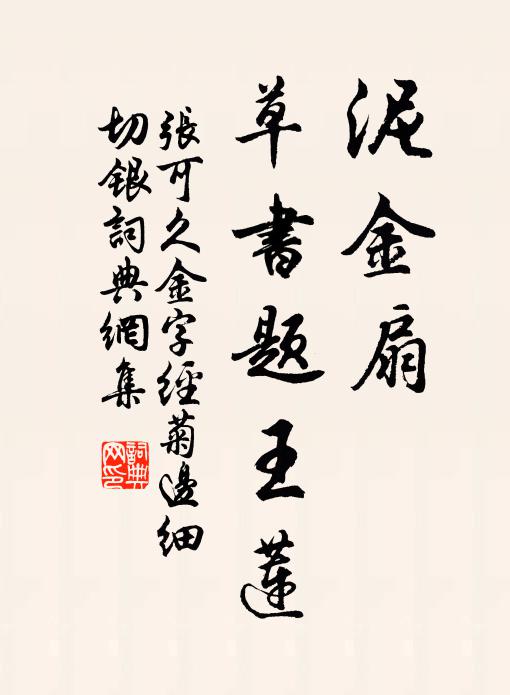 泥金扇
草書題王蓮
張可久金字經菊邊細
切銀詞典網集
詞典網印